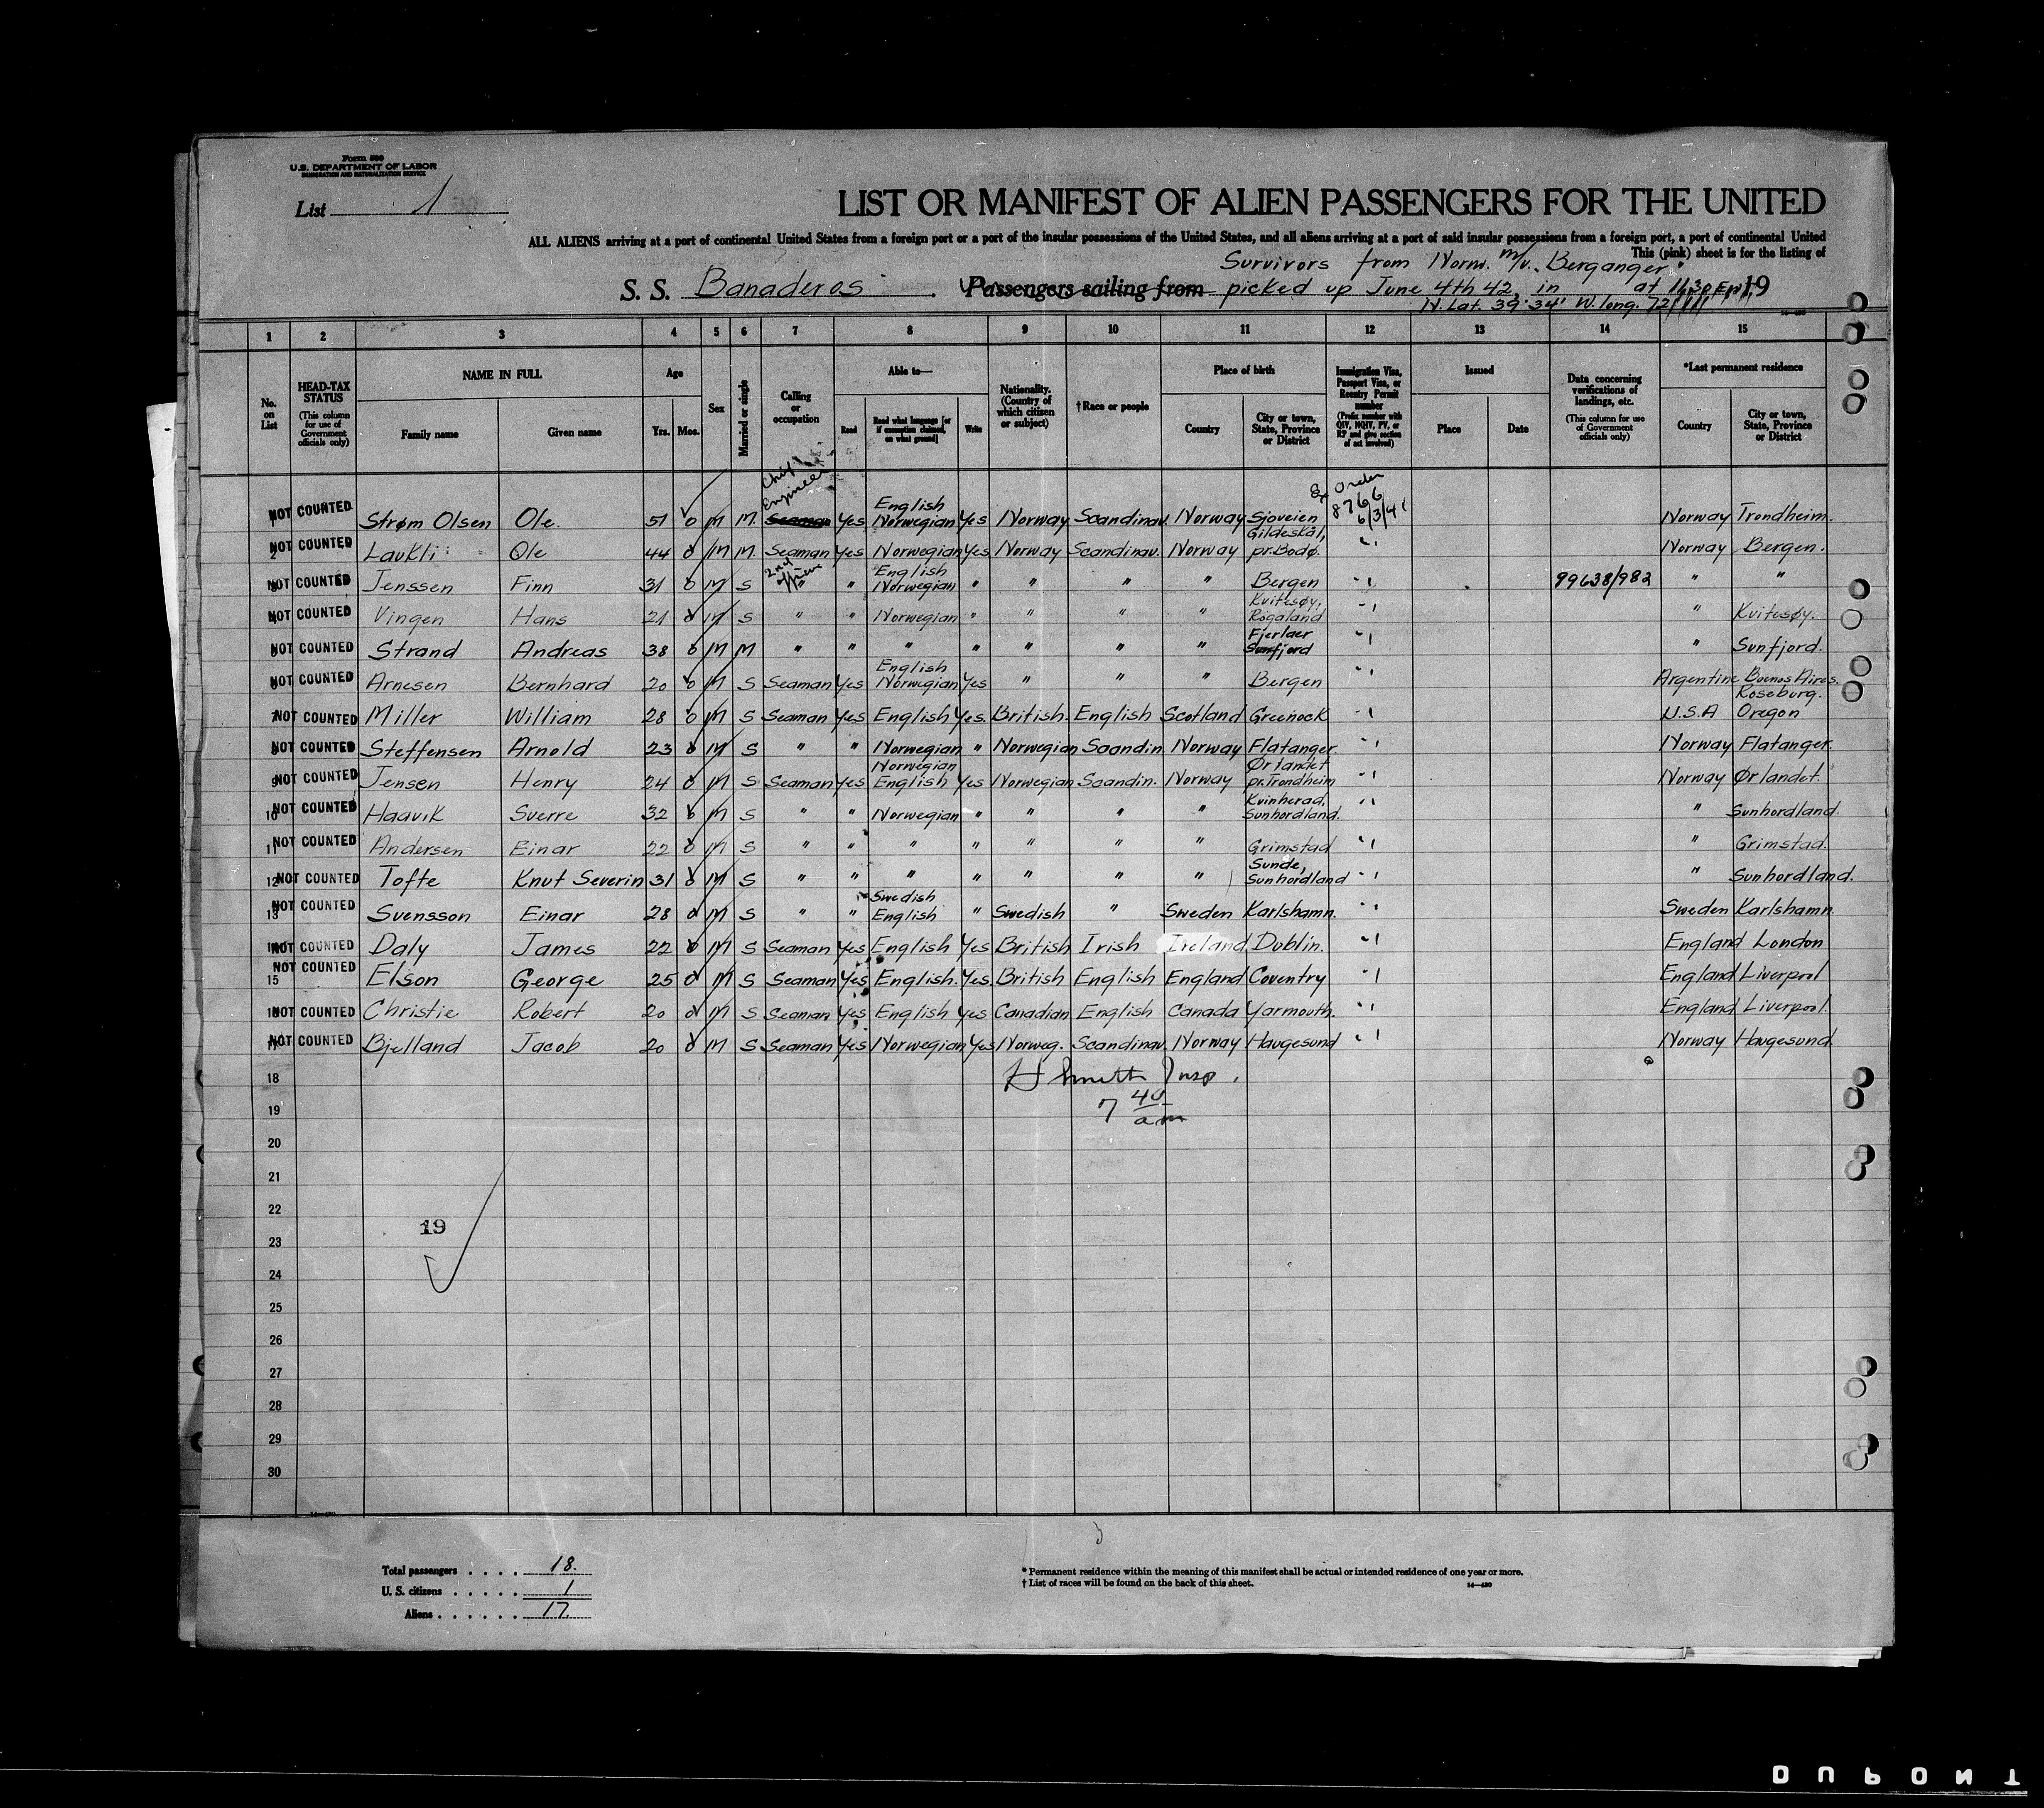 Form 500
U.S. DEPARTMENT OF LABOR
IMMIGRATION AND NATURALIZATION SERVICE
List 1
LIST OR MANIFEST OF ALIEN PASSENGERS FOR THE UNITED
ALL ALIENS arriving at a port of continental United States from a foreign port or a port of the insular possessions of the United States, and all aliens arriving at a port of said insular possessions from a foreign port, a port of continental United
This (pink) sheet is for the listing of
Survivors from Norw. m/v. Berganger.
S. S. Banaderos Passengers sailing from picked up June 4th 42, in at 19
N. Lat. 39°34' W. long. 72
1 2 3 4 5 6 7 8 9 10 11 12 13 14 15
No. on List
HEAD-TAX STATUS (This column for use of Government officials only)
NAME IN FULL
Family name Given name
Age
Yrs. Mos.
Sex
Married or single
Calling or occupation
Able to—
Read Read what language [or if exemption claimed, on what ground] Write
Nationality. (Country of which citizen or subject)
†Race or people
Place of birth
Country City or town, State, Province or District
Immigration Visa, Passport Visa, or Reentry Permit number (Prefix number with QIV, NQIV, PV, or RP and give section of act involved)
Issued
Place Date
Data concerning verifications of landings, etc. (This column for use of Government officials only)
*Last permanent residence
Country City or town, State, Province or District
1 NOT COUNTED Strøm Olsen Ole. 51 0 M M. Seaman Chief Engineer Yes English Norwegian Yes Norway Scandinav. Norway Sjoveien Ex Order 8766 6/3/41 Norway Trondheim.
2 NOT COUNTED Laukli Ole 44 0 M M. Seaman Yes Norwegian Yes Norway Scandinav. Norway Gildeskål, pr. Bodø. " Norway Bergen.
3 NOT COUNTED Jenssen Finn 31 0 M S 2nd officer " " English Norwegian " " " " Bergen " 99638/982 " "
4 NOT COUNTED Vingen Hans 21 0 M S " " Norwegian " " " " Kvitesøy, Rogaland " " Kvitesøy.
5 NOT COUNTED Strand Andreas 38 0 M M " " " " " " " Fjerlaer Sunfjord " " Sunfjord.
6 NOT COUNTED Arnesen Bernhard 20 0 M S Seaman Yes English Norwegian Yes " " " Bergen " Argentine Buenos Aires.
7 NOT COUNTED Miller William 28 0 M S Seaman Yes English Yes. British. English Scotland Greenock " U.S.A Roseburg. Oregon
8 NOT COUNTED Steffensen Arnold 23 0 M S " " Norwegian " Norwegian Scandin. Norway Flatanger. " Norway Flatanger.
9 NOT COUNTED Jensen Henry 24 0 M S Seaman Yes Norwegian English Yes Norwegian Scandin. Norway Ørlandet pr. Trondheim " Norway Ørlandet.
10 NOT COUNTED Haavik Sverre 32 0 M S " " Norwegian " " " " Kvinherad, Sunhordland. " " Sunhordland.
11 NOT COUNTED Andersen Einar 22 0 M S " " " " " " " Grimstad " " Grimstad.
12 NOT COUNTED Tofte Knut Severin 31 0 M S " " " " " " " Sunde, Sunhordland " " Sunhordland.
13 NOT COUNTED Svensson Einar 28 0 M S " " Swedish English " Swedish " Sweden Karlshamn. " Sweden Karlshamn.
14 NOT COUNTED Daly James 22 0 M S Seaman Yes English Yes British Irish Ireland Dublin. " England London
15 NOT COUNTED Elson George 25 0 M S Seaman Yes English. Yes. British English England Coventry " England Liverpool
16 NOT COUNTED Christie Robert 20 0 M S Seaman Yes English Yes Canadian English Canada Yarmouth. " England Liverpool.
17 NOT COUNTED Bjelland Jacob 20 0 M S Seaman Yes Norwegian Yes Norweg. Scandinav. Norway Haugesund " Norway Haugesund.
18
H Smith Insp.
19
7 40 am
20
21
22
19
23
24
25
26
27
28
29
30
Total passengers . . . . 18.
U. S. citizens . . . . . 1
Aliens . . . . . . 17.
* Permanent residence within the meaning of this manifest shall be actual or intended residence of one year or more.
† List of races will be found on the back of this sheet.
14—430
DUPONT